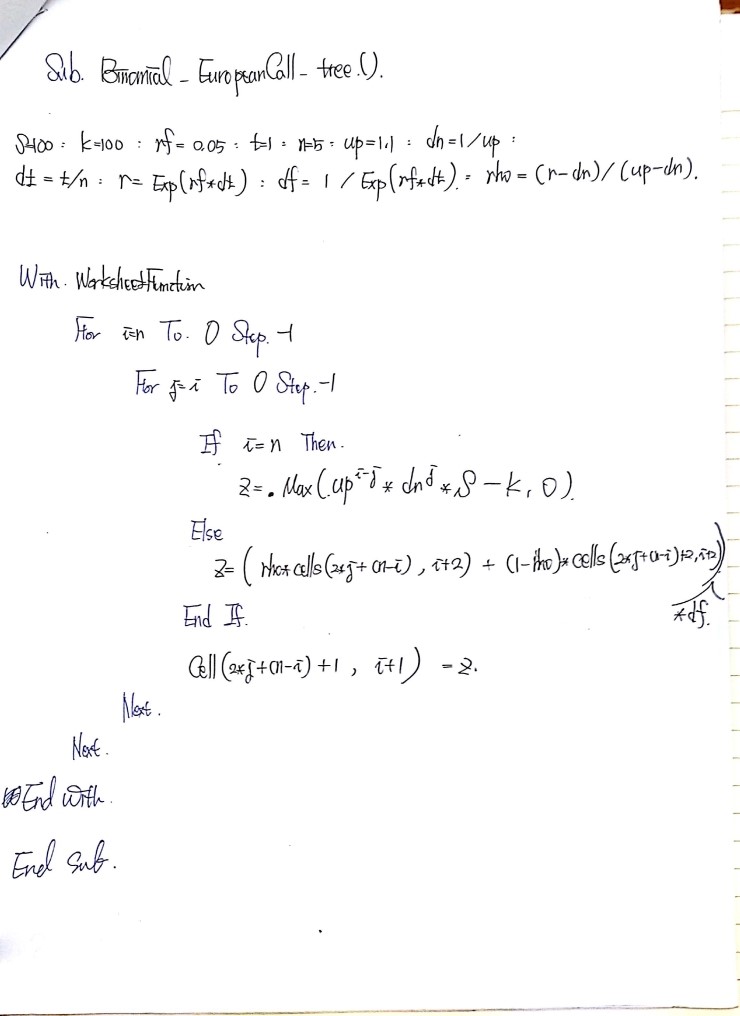 Sub. Binomial_EuropeanCall_tree().
S=100 : k=100 : rf = 0.05 : t=1 : n=5 : up=1.1 : dn=1/up :
dt = t/n : r= Exp(rf*dt) : df = 1 / Exp(rf*dt) : rho = (r-dn)/(up-dn).
With. WorksheetFunction
For i=n To. 0 Step. -1
For j=i To 0 Step. -1
If i=n Then.
Z=. Max(up^i-j * dn^j * S - k, 0)
Else
Z= ( rho*cells(2*j+(n-i), i+2) + (1-rho)*cells(2*j+(n-i)+2, i+2))
*df.
End If.
Cell(2*j+(n-i)+1, i+1) = Z.
Next.
Next.
End With.
End Sub.